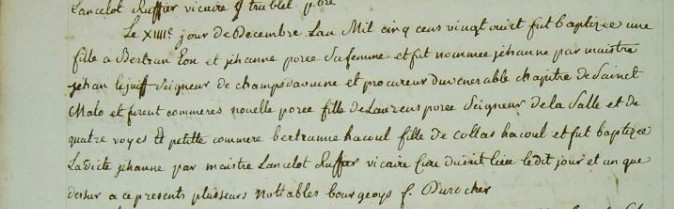 Lancelot Ruffier vicaire G trublet p.bre
Le XIIII.e jour de Decembre Lan Mil cinq cens vingt ouict fut baptizee une
fille a Bertran Eon et jehanne poree sa femme et fut nommee jehanne par maistre
jehan le juiff Seigneur de champsdavoinne et procureur du venerable chapitre de Sainct
Malo et furent commeres nouelle poree fille de Laurens poree Seigneur de la Salle et de
quatre voyes Et petitte commere bertranne hacoul fille de collas hacoul et fut baptizee
Ladicte jehanne par maistre Lancelot Ruffier vicaire Cure dudit lieu ledit jour et un que
dessur a ce presents plusieurs nottables bourgeoys f. Durocher